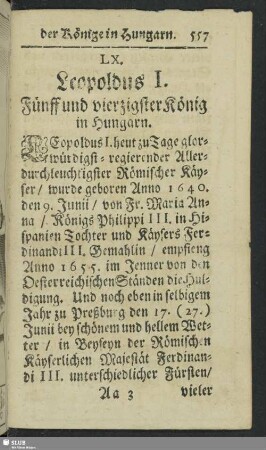 der Könige in Hungarn. 557
LX.
Leopoldus I.
Fünff und vierzigster König
in Hungarn.
LEopoldus I. heut zu Tage glor-
würdigst-regierender Aller-
durchleuchtigster Römischer Käy-
ser / wurde geboren Anno 1640.
den 9. Junii / von Fr. Maria An-
na / Königs Philippi III. in Hi-
spanien Tochter und Käysers Fer-
dinandi III. Gemahlin / empfieng
Anno 1655. im Jenner von den
Oesterreichischen Ständen die Hul-
digung. Und noch eben in selbigem
Jahr zu Preßburg den 17. (27.)
Junii bey schönem und hellem Wet-
ter / in Beyseyn der Römischen
Käyserlichen Majestät Ferdinan-
di III. unterschiedlicher Fürsten/
Aa 3 vieler
SLUB